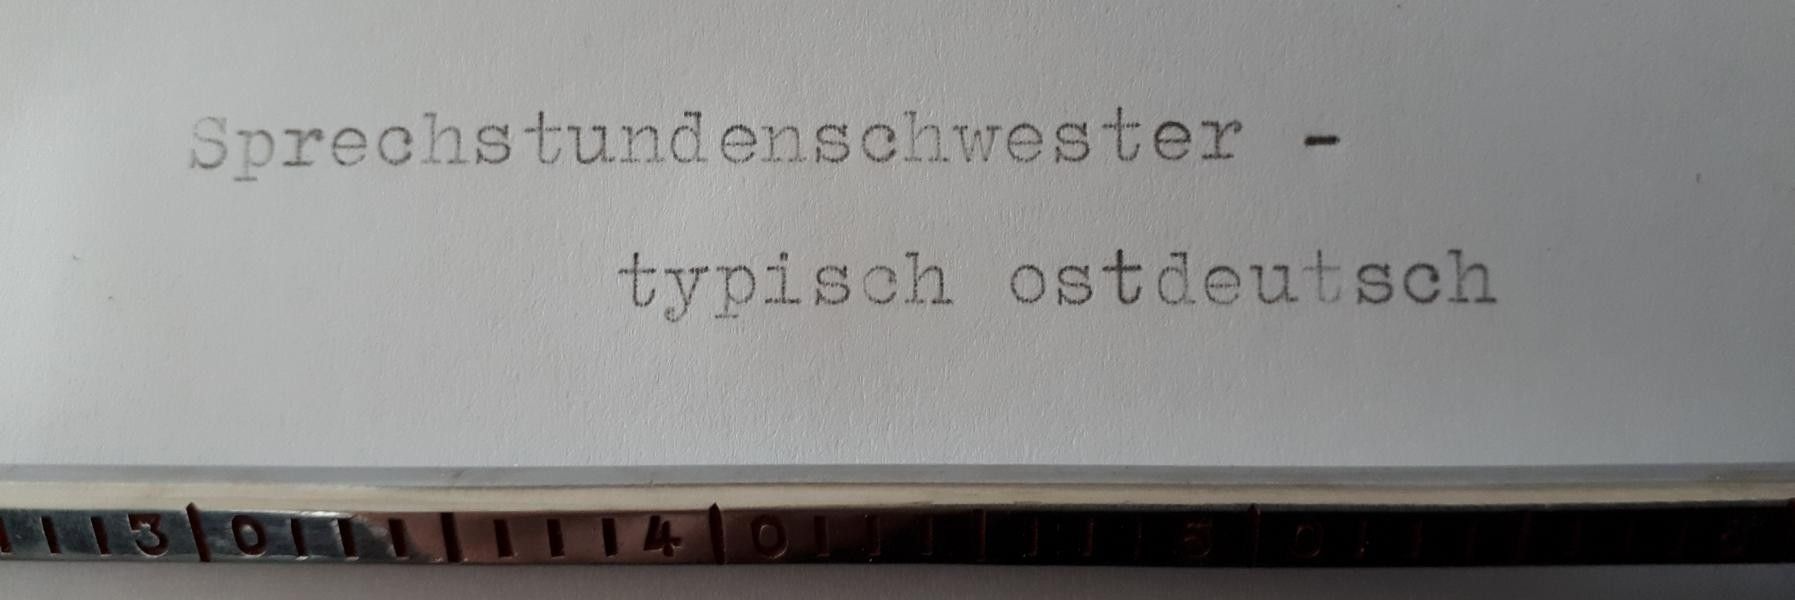 Sprechstundenschwester -
typisch ostdeutsch
30 40 50